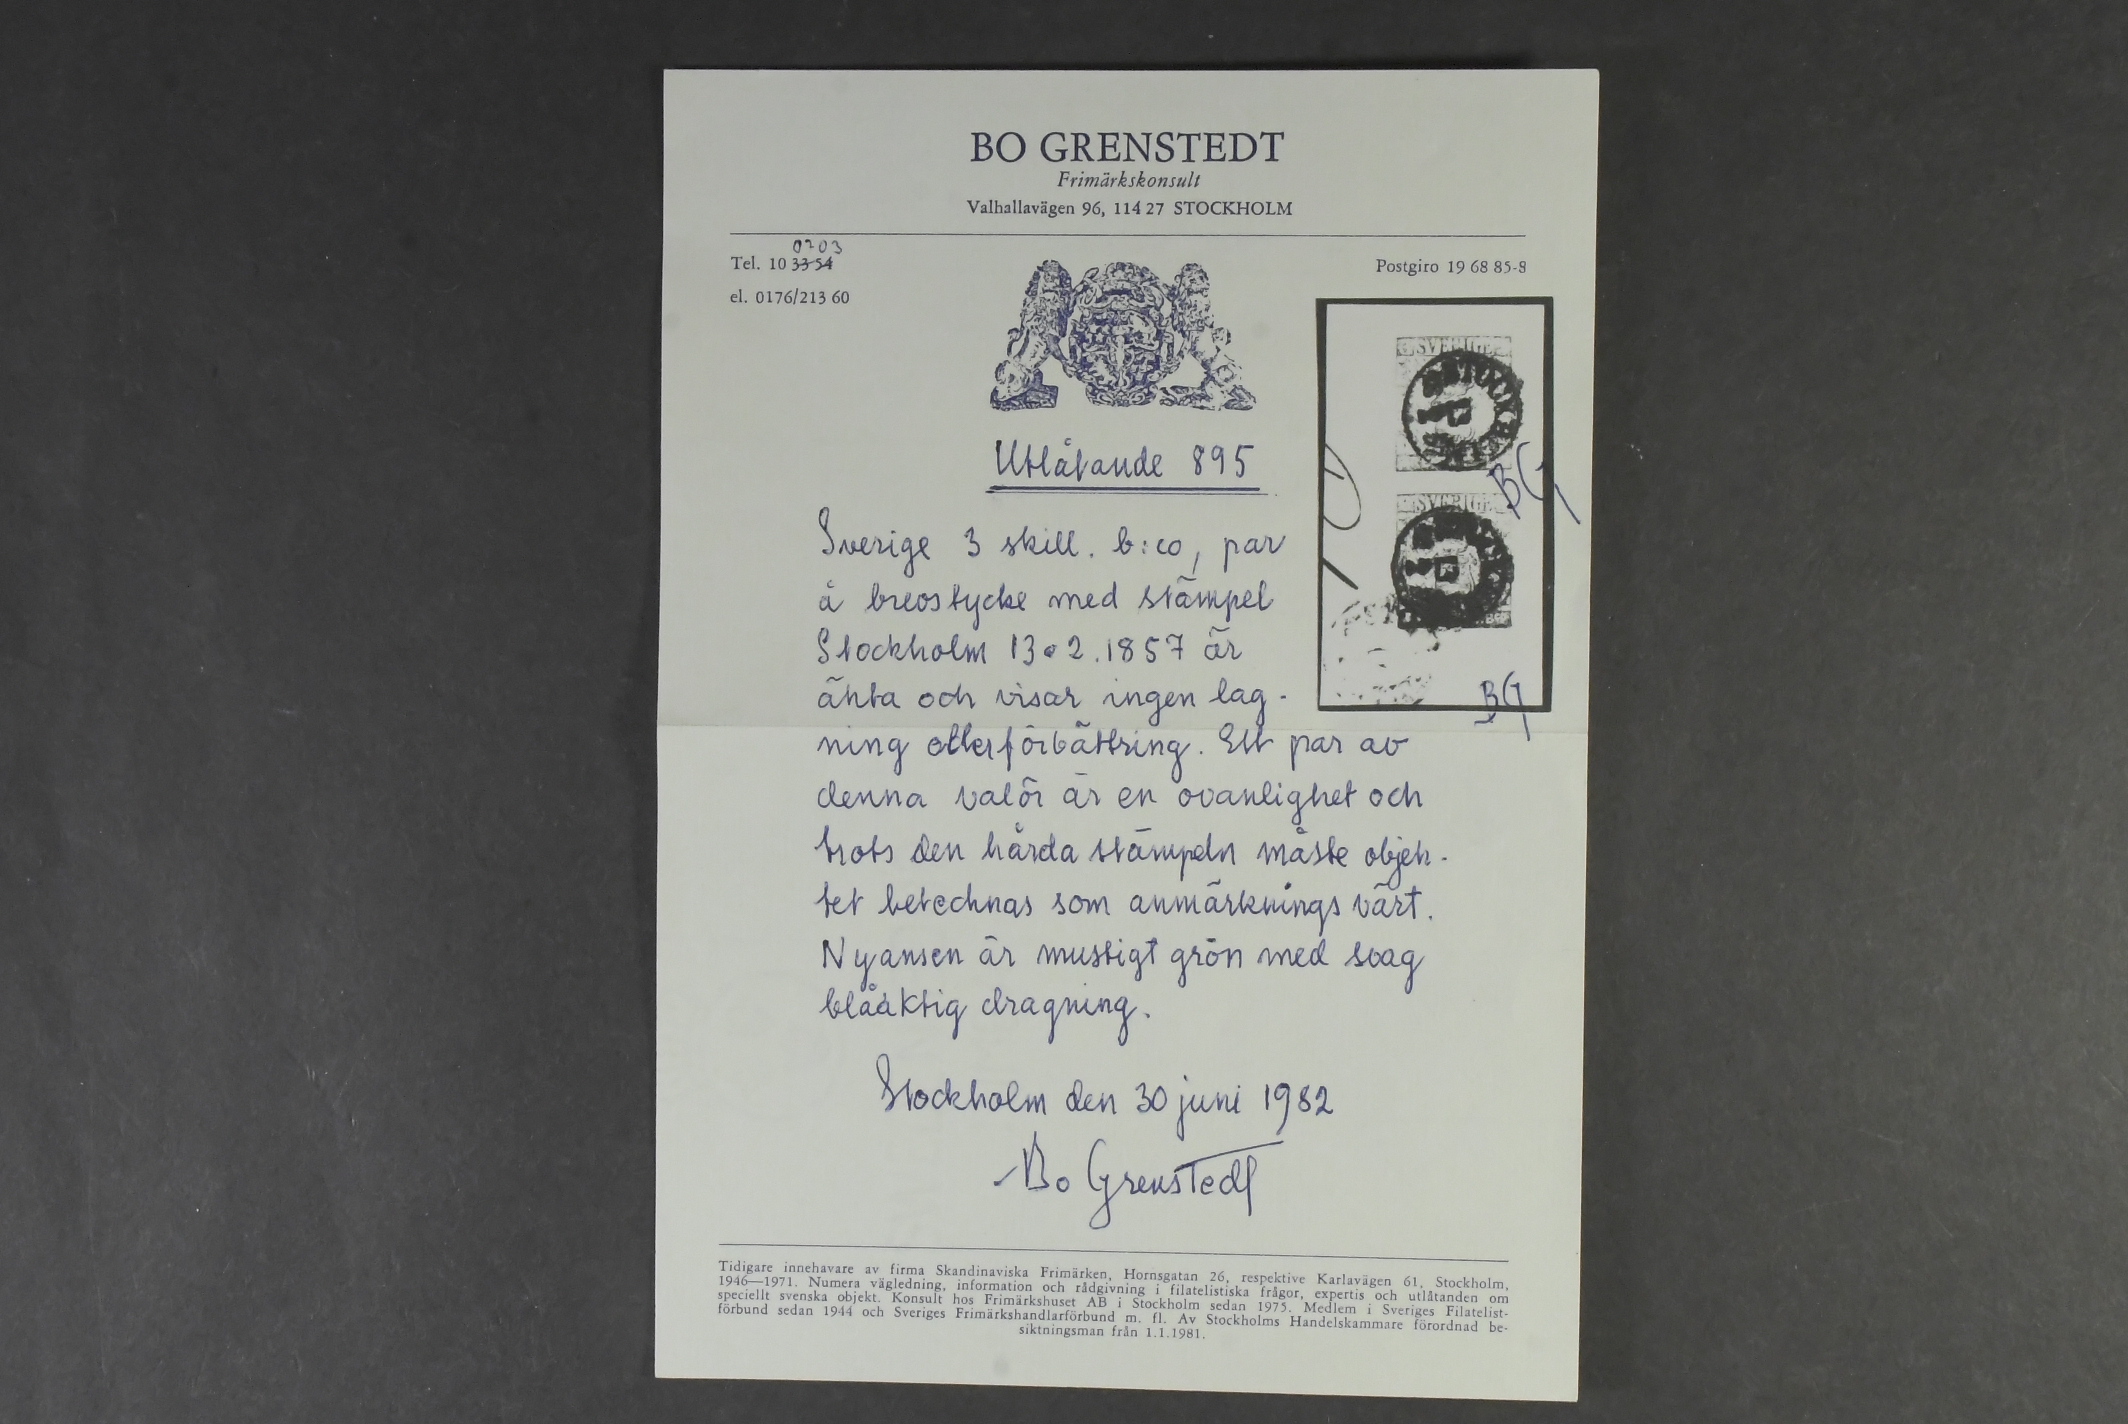 BO GRENSTEDT
Frimärkskonsult
Valhallavägen 96, 114 27 STOCKHOLM
0203
Tel. 10 33 54
el. 0176/213 60
Postgiro 19 68 85-8
SVERIGE
BG
SVERIGE
BG
Utlåtande 895
Sverige 3 skill. b:co, par
å brevstycke med stämpel
Stockholm 13.2.1857 är
äkta och visar ingen lag-
ning eller förbättring. Ett par av
denna valör är en ovanlighet och
trots den hårda stämpeln måste objek-
tet betecknas som anmärknings värt.
Nyansen är mustigt grön med svag
blåaktig dragning.
Stockholm den 30 juni 1982
Bo Grenstedt
Tidigare innehavare av firma Skandinaviska Frimärken, Hornsgatan 26, respektive Karlavägen 61, Stockholm,
1946—1971. Numera vägledning, information och rådgivning i filatelistiska frågor, expertis och utlåtanden om
speciellt svenska objekt. Konsult hos Frimärkshuset AB i Stockholm sedan 1975. Medlem i Sveriges Filatelist-
förbund sedan 1944 och Sveriges Frimärkshandlarförbund m. fl. Av Stockholms Handelskammare förordnad be-
siktningsman från 1.1.1981.